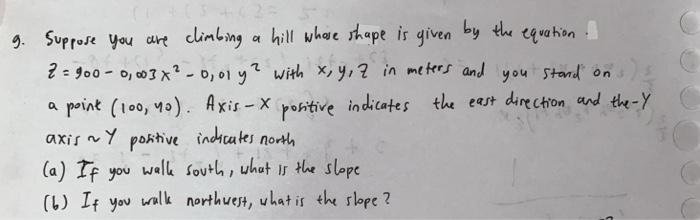 9. Suppose you are climbing a hill whose shape is given by the equation.
z = 900 - 0,003x² - 0,01y² with x, y, z in meters and you stand on
a point (100, 40). Axis-X positive indicates the east direction and the-Y
axis ~ Y positive indicates north
(a) If you walk south, what is the slope
(b) If you walk northwest, what is the slope?